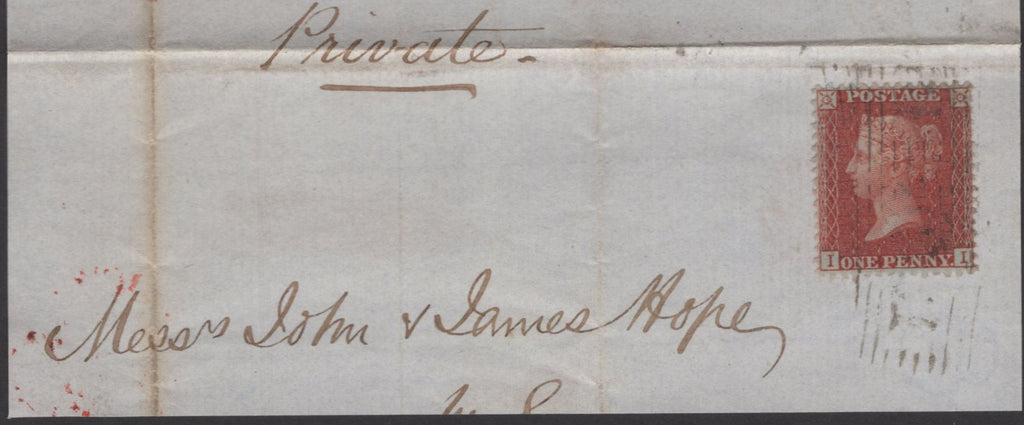 Private.
POSTAGE
I ONE PENNY. I
Messrs John & James Hope
W. S.